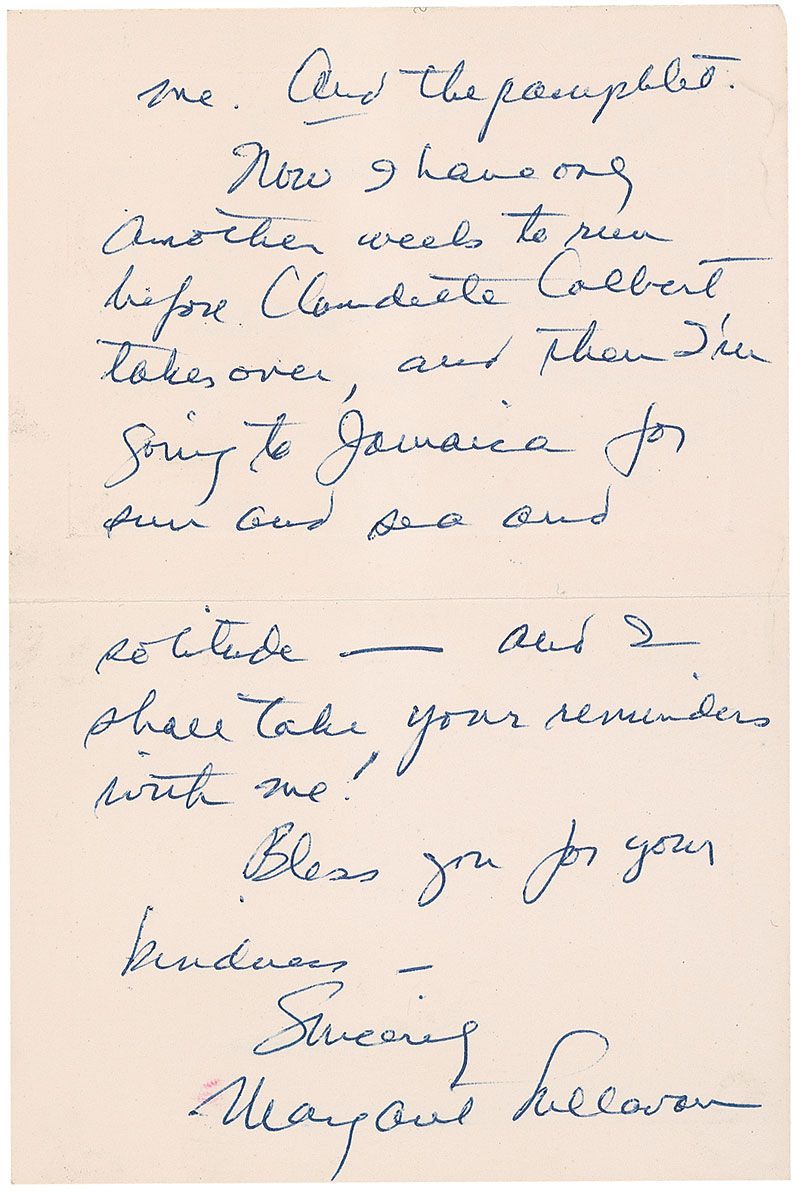 me. And the pamphlet.
Now I have only
another week to run
before Claudette Colbert
takes over, and then I'm
going to Jamaica for
sun and sea and
solitude — and I
shall take your reminders
with me!
Bless you for your
kindness —
Sincerely
Margaret Sullavan